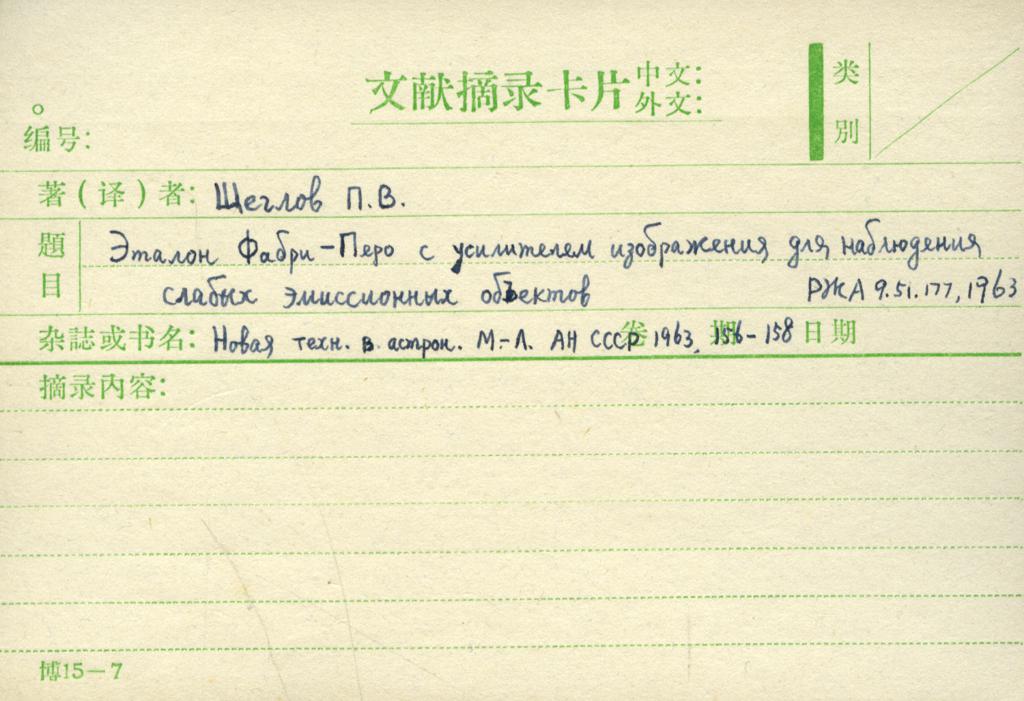 文献摘录卡片 中文:
外文:
类別
编号:
著(译)者: Щеглов П.В.
题目 Эталон Фабри-Перо с усилителем изображения для наблюдения
слабых эмиссионных объектов РЖА 9.51.177, 1963
杂誌或书名: Новая техн. в астрон. М.-Л. АН СССР 卷 1963, 期 156-158 日期
摘录内容:
博15-7